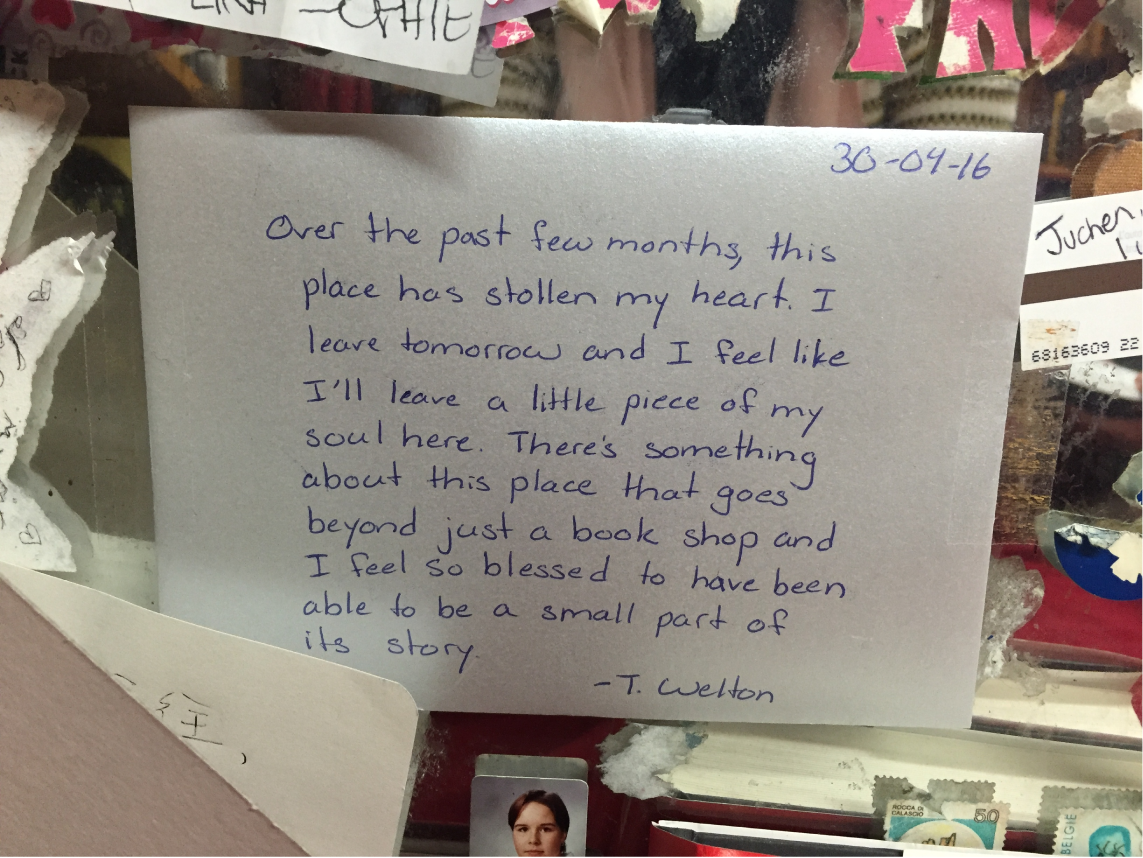 -OPHIE
30-04-16
Over the past few months, this
place has stollen my heart. I
leave tomorrow and I feel like
I'll leave a little piece of my
soul here. There's something
about this place that goes
beyond just a book shop and
I feel so blessed to have been
able to be a small part of
its story.
-T. Welton
Juchen,
68163609 22
ROCCA DI
CALASCIO
50
BELGIE